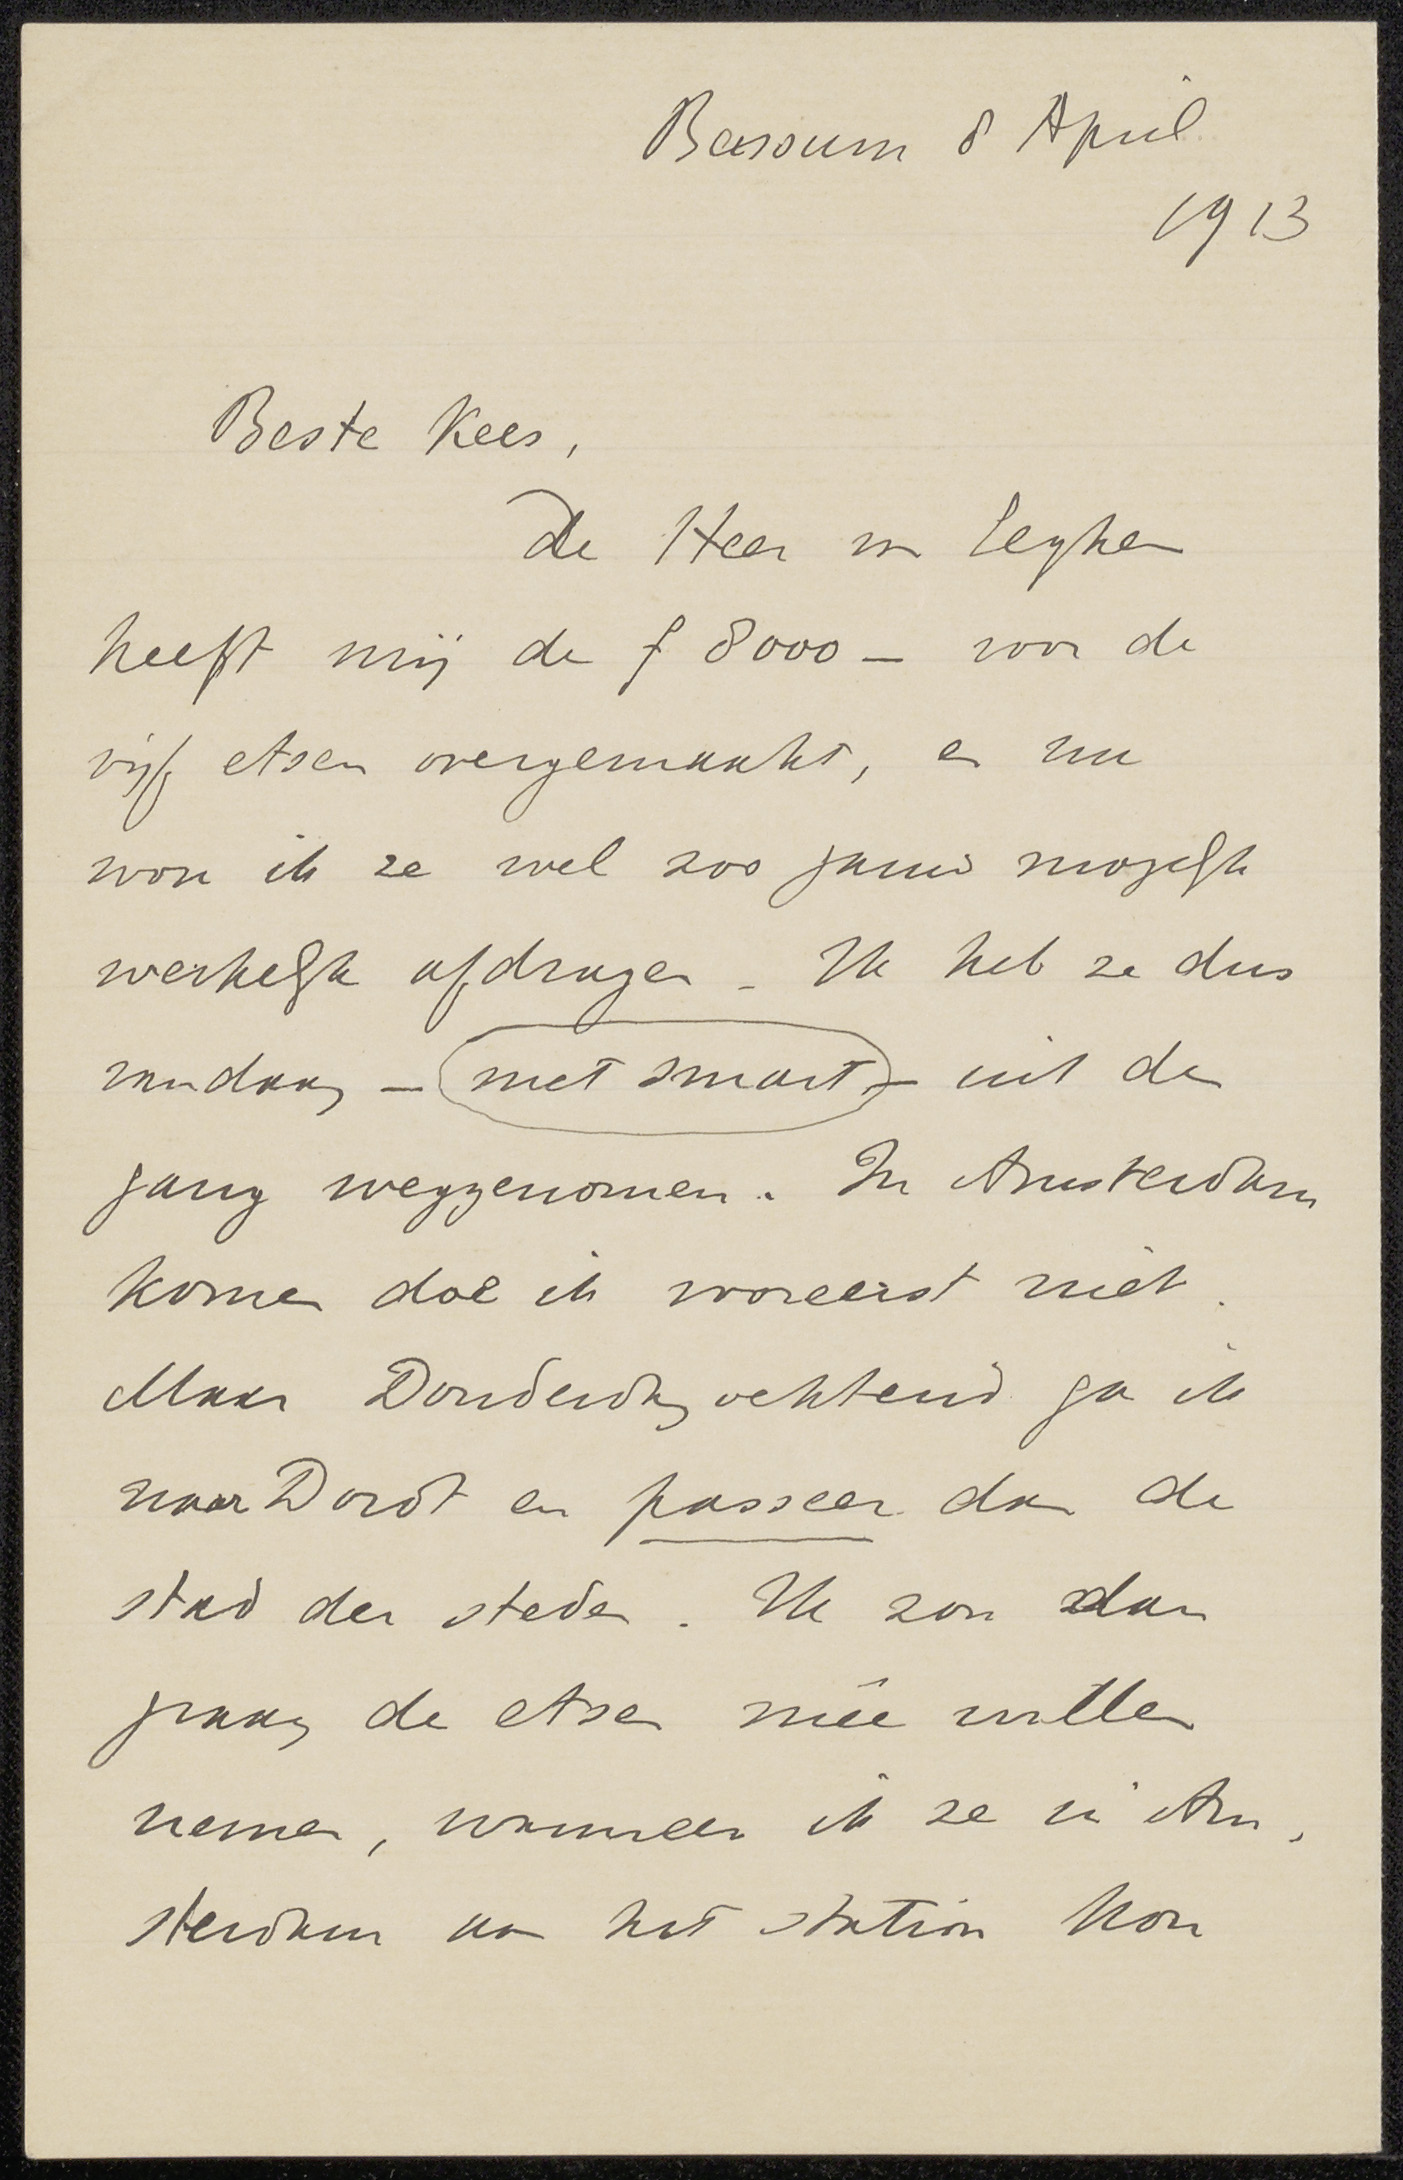 Bussum 8 April
1913
Beste Kees,
De Heer v Eeghen
heeft mij de f 8000 – voor de
vijf etsen overgemaakt, en nu
wou ik ze wel zoo gauw mogelijk
werkelijk afdragen – Ik heb ze dus
vandaag – met smart – uit de
gang weggenomen. In Amsterdam
komen doe ik vooreerst niet.
Maar Donderdag ochtend ga ik
naar Dordt en passeer dan de
stad der steden. Ik zou dan
graag de etsen mee willen
nemen, wanneer ik ze in Am-
sterdam aan het station kon